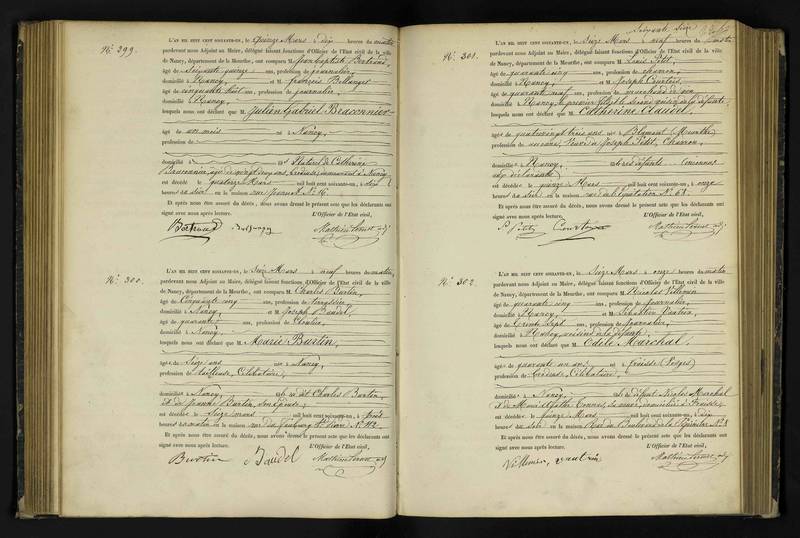 N.º 299.
L'AN MIL HUIT CENT SOIXANTE-UN, le quinze Mars à dix heures du matin
pardevant nous Adjoint au Maire, délégué faisant fonctions d'Officier de l'Etat civil de la ville
de Nancy, département de la Meurthe, ont comparu M. Jean Baptiste Bertrand,
âgé de soixante quinze ans, profession de journalier,
domicilié à Nancy et M. François
âgé de cinquante huit ans, profession de journalier,
domicilié à Nancy,
lesquels nous ont déclaré que M. Julien Gabriel Braconnier
âgé de un mois né à Nancy,
profession de
domicilié à Naturel de Catherine
Braconnier, demeurant à Nancy
est décédé le quatorze Mars mil huit cent soixante-un, à
heures du soir en la maison rue N.º 16.
Et après nous être assuré du décès, nous avons dressé le présent acte que les déclarants ont
signé avec nous après lecture. L'Officier de l'Etat civil,
Bertrand
N.º 300.
L'AN MIL HUIT CENT SOIXANTE-UN, le Seize Mars à neuf heures du matin,
pardevant nous Adjoint au Maire, délégué faisant fonctions d'Officier de l'Etat civil de la ville
de Nancy, département de la Meurthe, ont comparu M. Charles Burtin,
âgé de Cinquante cinq ans, profession de
domicilié à Nancy, et M. Joseph Baudel,
âgé de quarante ans, profession de Cloutier,
domicilié à Nancy,
lesquels nous ont déclaré que M. Marie Burtin,
âgée de Seize ans née à Nancy,
profession de tailleuse, Célibataire,
domiciliée à Nancy, fille dudit Charles Burtin,
et de Jeanne Burtin, son épouse,
est décédée le seize mars mil huit cent soixante-un, à trois
heures du matin en la maison rue du faubourg St Pierre N.º 112.
Et après nous être assuré du décès, nous avons dressé le présent acte que les déclarants ont
signé avec nous après lecture. L'Officier de l'Etat civil,
Burtin Baudel
Soixante Seize
N.º 301.
L'AN MIL HUIT CENT SOIXANTE-UN, le Seize Mars à neuf heures du matin
pardevant nous Adjoint au Maire, délégué faisant fonctions d'Officier de l'Etat civil de la ville
de Nancy, département de la Meurthe, ont comparu M. Louis Petit,
âgé de quarante cinq ans, profession de charron,
domicilié à Nancy, et M. Joseph Courtois,
âgé de quarante neuf ans, profession de marchand de vin
domicilié à Nancy, le premier fils et le second voisin de la défunte,
lesquels nous ont déclaré que M. Catherine Claudel,
âgée de quatrevingt trois ans née à Blamont (Meurthe)
profession de sans, Veuve de Joseph Petit, Charron,
domiciliée à Nancy,
est décédée le quinze Mars mil huit cent soixante-un, à onze
heures du soir en la maison rue de N.º 68.
Et après nous être assuré du décès, nous avons dressé le présent acte que les déclarants ont
signé avec nous après lecture. L'Officier de l'Etat civil,
Petit Courtois
N.º 302
L'AN MIL HUIT CENT SOIXANTE-UN, le Seize Mars à onze heures du matin
pardevant nous Adjoint au Maire, délégué faisant fonctions d'Officier de l'Etat civil de la ville
de Nancy, département de la Meurthe, ont comparu M. Nicolas Villemin
âgé de quarante cinq ans, profession de journalier,
domicilié à Nancy, et M. Sébastien Vautrin,
âgé de trente sept ans, profession de journalier,
domicilié à Nancy, voisins de la défunte,
lesquels nous ont déclaré que M. Odile Marchal,
âgée de quarante un ans née à Fraisse (Vosges)
profession de Célibataire,
domiciliée à Nancy, fille de défunt Nicolas Marchal
et de Marie
est décédée le quinze Mars mil huit cent soixante-un, à dix
heures du soir en la maison rue du Boulevard de la Pépinière N.º
Et après nous être assuré du décès, nous avons dressé le présent acte que les déclarants ont
signé avec nous après lecture. L'Officier de l'Etat civil,
Villemin, Vautrin